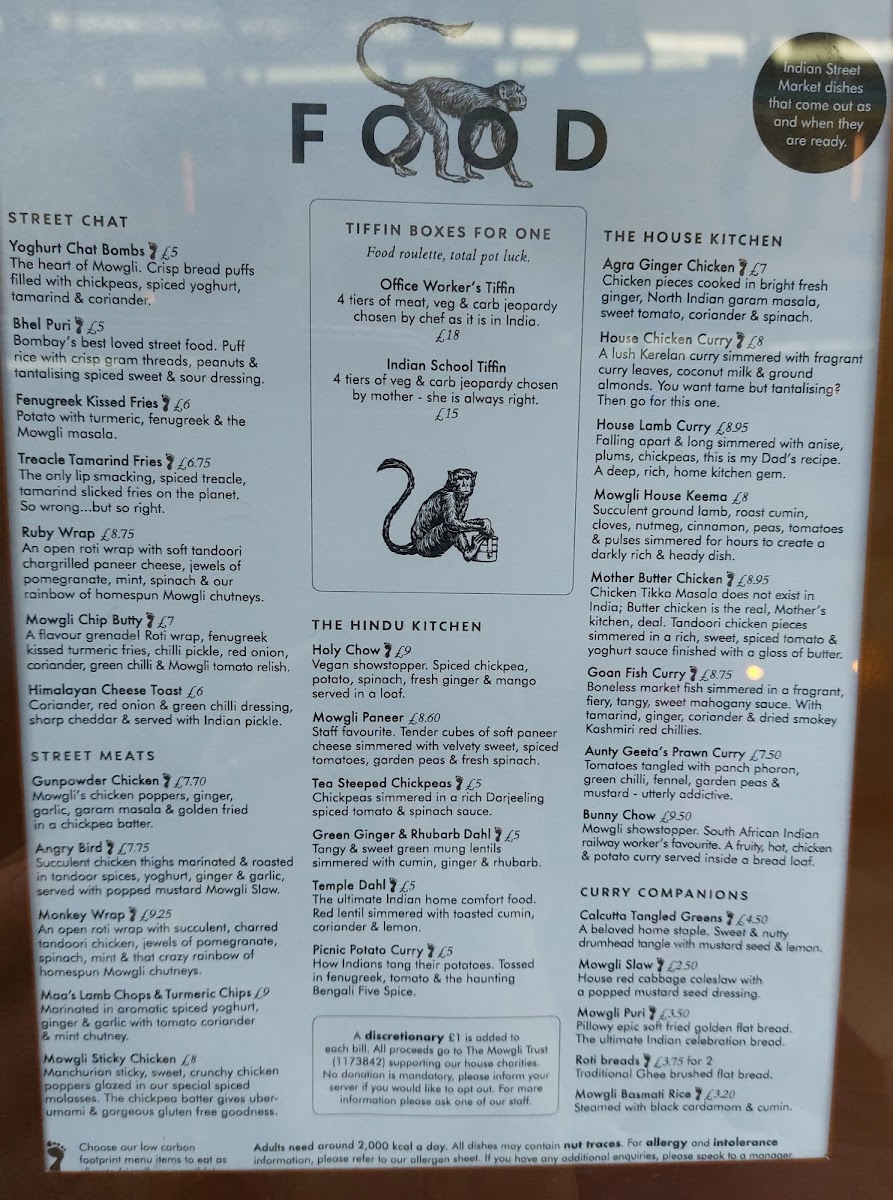 FOOD
Indian Street
Market dishes
that come out as
and when they
are ready.
STREET CHAT
Yoghurt Chat Bombs £5
The heart of Mowgli. Crisp bread puffs
filled with chickpeas, spiced yoghurt,
tamarind & coriander.
Bhel Puri £5
Bombay's best loved street food. Puff
rice with crisp gram threads, peanuts &
tantalising spiced sweet & sour dressing.
Fenugreek Kissed Fries £6
Potato with turmeric, fenugreek & the
Mowgli masala.
Treacle Tamarind Fries £6.75
The only lip smacking, spiced treacle,
tamarind slicked fries on the planet.
So wrong...but so right.
Ruby Wrap £8.75
An open roti wrap with soft tandoori
chargrilled paneer cheese, jewels of
pomegranate, mint, spinach & our
rainbow of homespun Mowgli chutneys.
Mowgli Chip Butty £7
A flavour grenade! Roti wrap, fenugreek
kissed turmeric fries, chilli pickle, red onion,
coriander, green chilli & Mowgli tomato relish.
Himalayan Cheese Toast £6
Coriander, red onion & green chilli dressing,
sharp cheddar & served with Indian pickle.
STREET MEATS
Gunpowder Chicken £7.70
Mowgli's chicken poppers, ginger,
garlic, garam masala & golden fried
in a chickpea batter.
Angry Bird £7.75
Succulent chicken thighs marinated & roasted
in tandoor spices, yoghurt, ginger & garlic,
served with popped mustard Mowgli Slaw.
Monkey Wrap £9.25
An open roti wrap with succulent, charred
tandoori chicken, jewels of pomegranate,
spinach, mint & that crazy rainbow of
homespun Mowgli chutneys.
Maa's Lamb Chops & Turmeric Chips £9
Marinated in aromatic spiced yoghurt,
ginger & garlic with tomato coriander
& mint chutney.
Mowgli Sticky Chicken £8
Manchurian sticky, sweet, crunchy chicken
poppers glazed in our special spiced
molasses. The chickpea batter gives uber-
umami & gorgeous gluten free goodness.
TIFFIN BOXES FOR ONE
Food roulette, total pot luck.
Office Worker's Tiffin
4 tiers of meat, veg & carb jeopardy
chosen by chef as it is in India.
£18
Indian School Tiffin
4 tiers of veg & carb jeopardy chosen
by mother - she is always right.
£15
THE HINDU KITCHEN
Holy Chow £9
Vegan showstopper. Spiced chickpea,
potato, spinach, fresh ginger & mango
served in a loaf.
Mowgli Paneer £8.60
Staff favourite. Tender cubes of soft paneer
cheese simmered with velvety sweet, spiced
tomatoes, garden peas & fresh spinach.
Tea Steeped Chickpeas £5
Chickpeas simmered in a rich Darjeeling
spiced tomato & spinach sauce.
Green Ginger & Rhubarb Dahl £5
Tangy & sweet green mung lentils
simmered with cumin, ginger & rhubarb.
Temple Dahl £5
The ultimate Indian home comfort food.
Red lentil simmered with toasted cumin,
coriander & lemon.
Picnic Potato Curry £5
How Indians tang their potatoes. Tossed
in fenugreek, tomato & the haunting
Bengali Five Spice.
A discretionary £1 is added to
each bill. All proceeds go to The Mowgli Trust
(1173842) supporting our house charities.
No donation is mandatory, please inform your
server if you would like to opt out. For more
information please ask one of our staff.
THE HOUSE KITCHEN
Agra Ginger Chicken £7
Chicken pieces cooked in bright fresh
ginger, North Indian garam masala,
sweet tomato, coriander & spinach.
House Chicken Curry £8
A lush Kerelan curry simmered with fragrant
curry leaves, coconut milk & ground
almonds. You want tame but tantalising?
Then go for this one.
House Lamb Curry £8.95
Falling apart & long simmered with anise,
plums, chickpeas, this is my Dad's recipe.
A deep, rich, home kitchen gem.
Mowgli House Keema £8
Succulent ground lamb, roast cumin,
cloves, nutmeg, cinnamon, peas, tomatoes
& pulses simmered for hours to create a
darkly rich & heady dish.
Mother Butter Chicken £8.95
Chicken Tikka Masala does not exist in
India; Butter chicken is the real, Mother's
kitchen, deal. Tandoori chicken pieces
simmered in a rich, sweet, spiced tomato &
yoghurt sauce finished with a gloss of butter.
Goan Fish Curry £8.75
Boneless market fish simmered in a fragrant,
fiery, tangy, sweet mahogany sauce. With
tamarind, ginger, coriander & dried smokey
Kashmiri red chillies.
Aunty Geeta's Prawn Curry £7.50
Tomatoes tangled with panch phoron,
green chilli, fennel, garden peas &
mustard - utterly addictive.
Bunny Chow £9.50
Mowgli showstopper. South African Indian
railway worker's favourite. A fruity, hot, chicken
& potato curry served inside a bread loaf.
CURRY COMPANIONS
Calcutta Tangled Greens £4.50
A beloved home staple. Sweet & nutty
drumhead tangle with mustard seed & lemon.
Mowgli Slaw £2.50
House red cabbage coleslaw with
a popped mustard seed dressing.
Mowgli Puri £3.50
Pillowy epic soft fried golden flat bread.
The ultimate Indian celebration bread.
Roti breads £3.75 for 2
Traditional Ghee brushed flat bread.
Mowgli Basmati Rice £3.20
Steamed with black cardamom & cumin.
Choose our low carbon
footprint menu items to eat as
Adults need around 2,000 kcal a day. All dishes may contain nut traces. For allergy and intolerance
information, please refer to our allergen sheet. If you have any additional enquiries, please speak to a manager.